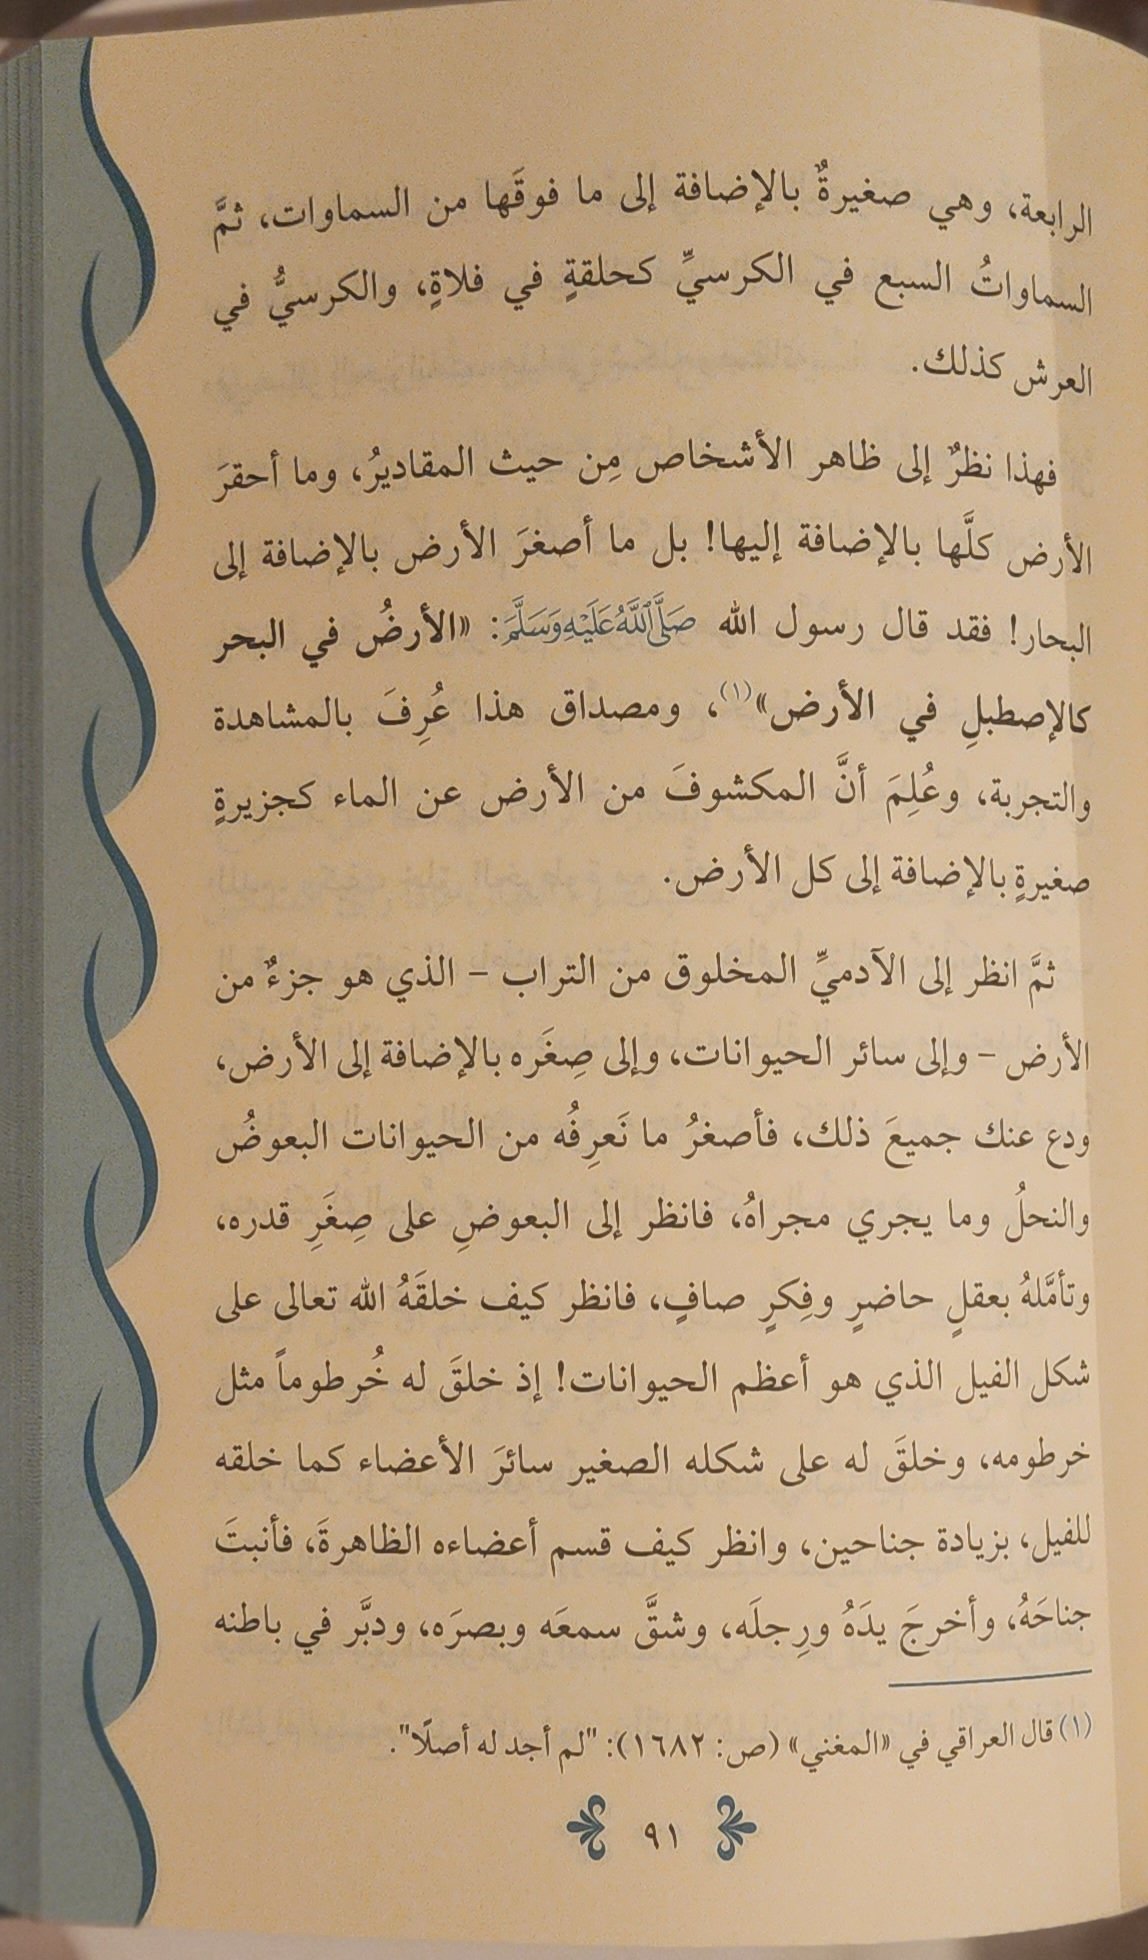 الرابعة، وهي صغيرةٌ بالإضافة إلى ما فوقَها من السماوات، ثمَّ
السماواتُ السبع في الكرسيِّ كحلقةٍ في فلاةٍ، والكرسيُّ في
العرش كذلك.
فهذا نظرٌ إلى ظاهر الأشخاص مِن حيث المقاديرُ، وما أحقرَ
الأرض كلَّها بالإضافة إليها! بل ما أصغرَ الأرض بالإضافة إلى
البحار! فقد قال رسول الله صَلَّى اللَّهُ عَلَيْهِ وَسَلَّمَ: «الأرضُ في البحر
كالإصطبلِ في الأرض»(١)، ومصداق هذا عُرِفَ بالمشاهدة
والتجربة، وعُلِمَ أنَّ المكشوفَ من الأرض عن الماء كجزيرةٍ
صغيرةٍ بالإضافة إلى كل الأرض.
ثمَّ انظر إلى الآدميِّ المخلوق من التراب - الذي هو جزءٌ من
الأرض - وإلى سائر الحيوانات، وإلى صِغَره بالإضافة إلى الأرض،
ودع عنك جميعَ ذلك، فأصغرُ ما نَعرِفُه من الحيوانات البعوضُ
والنحلُ وما يجري مجراهُ، فانظر إلى البعوضِ على صِغَرِ قدره،
وتأمَّلهُ بعقلٍ حاضرٍ وفِكرٍ صافٍ، فانظر كيف خلقَهُ الله تعالى على
شكل الفيل الذي هو أعظم الحيوانات! إذ خلقَ له خُرطوماً مثل
خرطومه، وخلقَ له على شكله الصغير سائرَ الأعضاء كما خلقه
للفيل، بزيادة جناحين، وانظر كيف قسم أعضاءه الظاهرةَ، فأنبتَ
جناحَهُ، وأخرجَ يدَهُ ورِجلَه، وشقَّ سمعَه وبصرَه، ودبَّر في باطنه
(١) قال العراقي في «المغني» (ص: ١٦٨٢): "لم أجد له أصلًا".
٩١